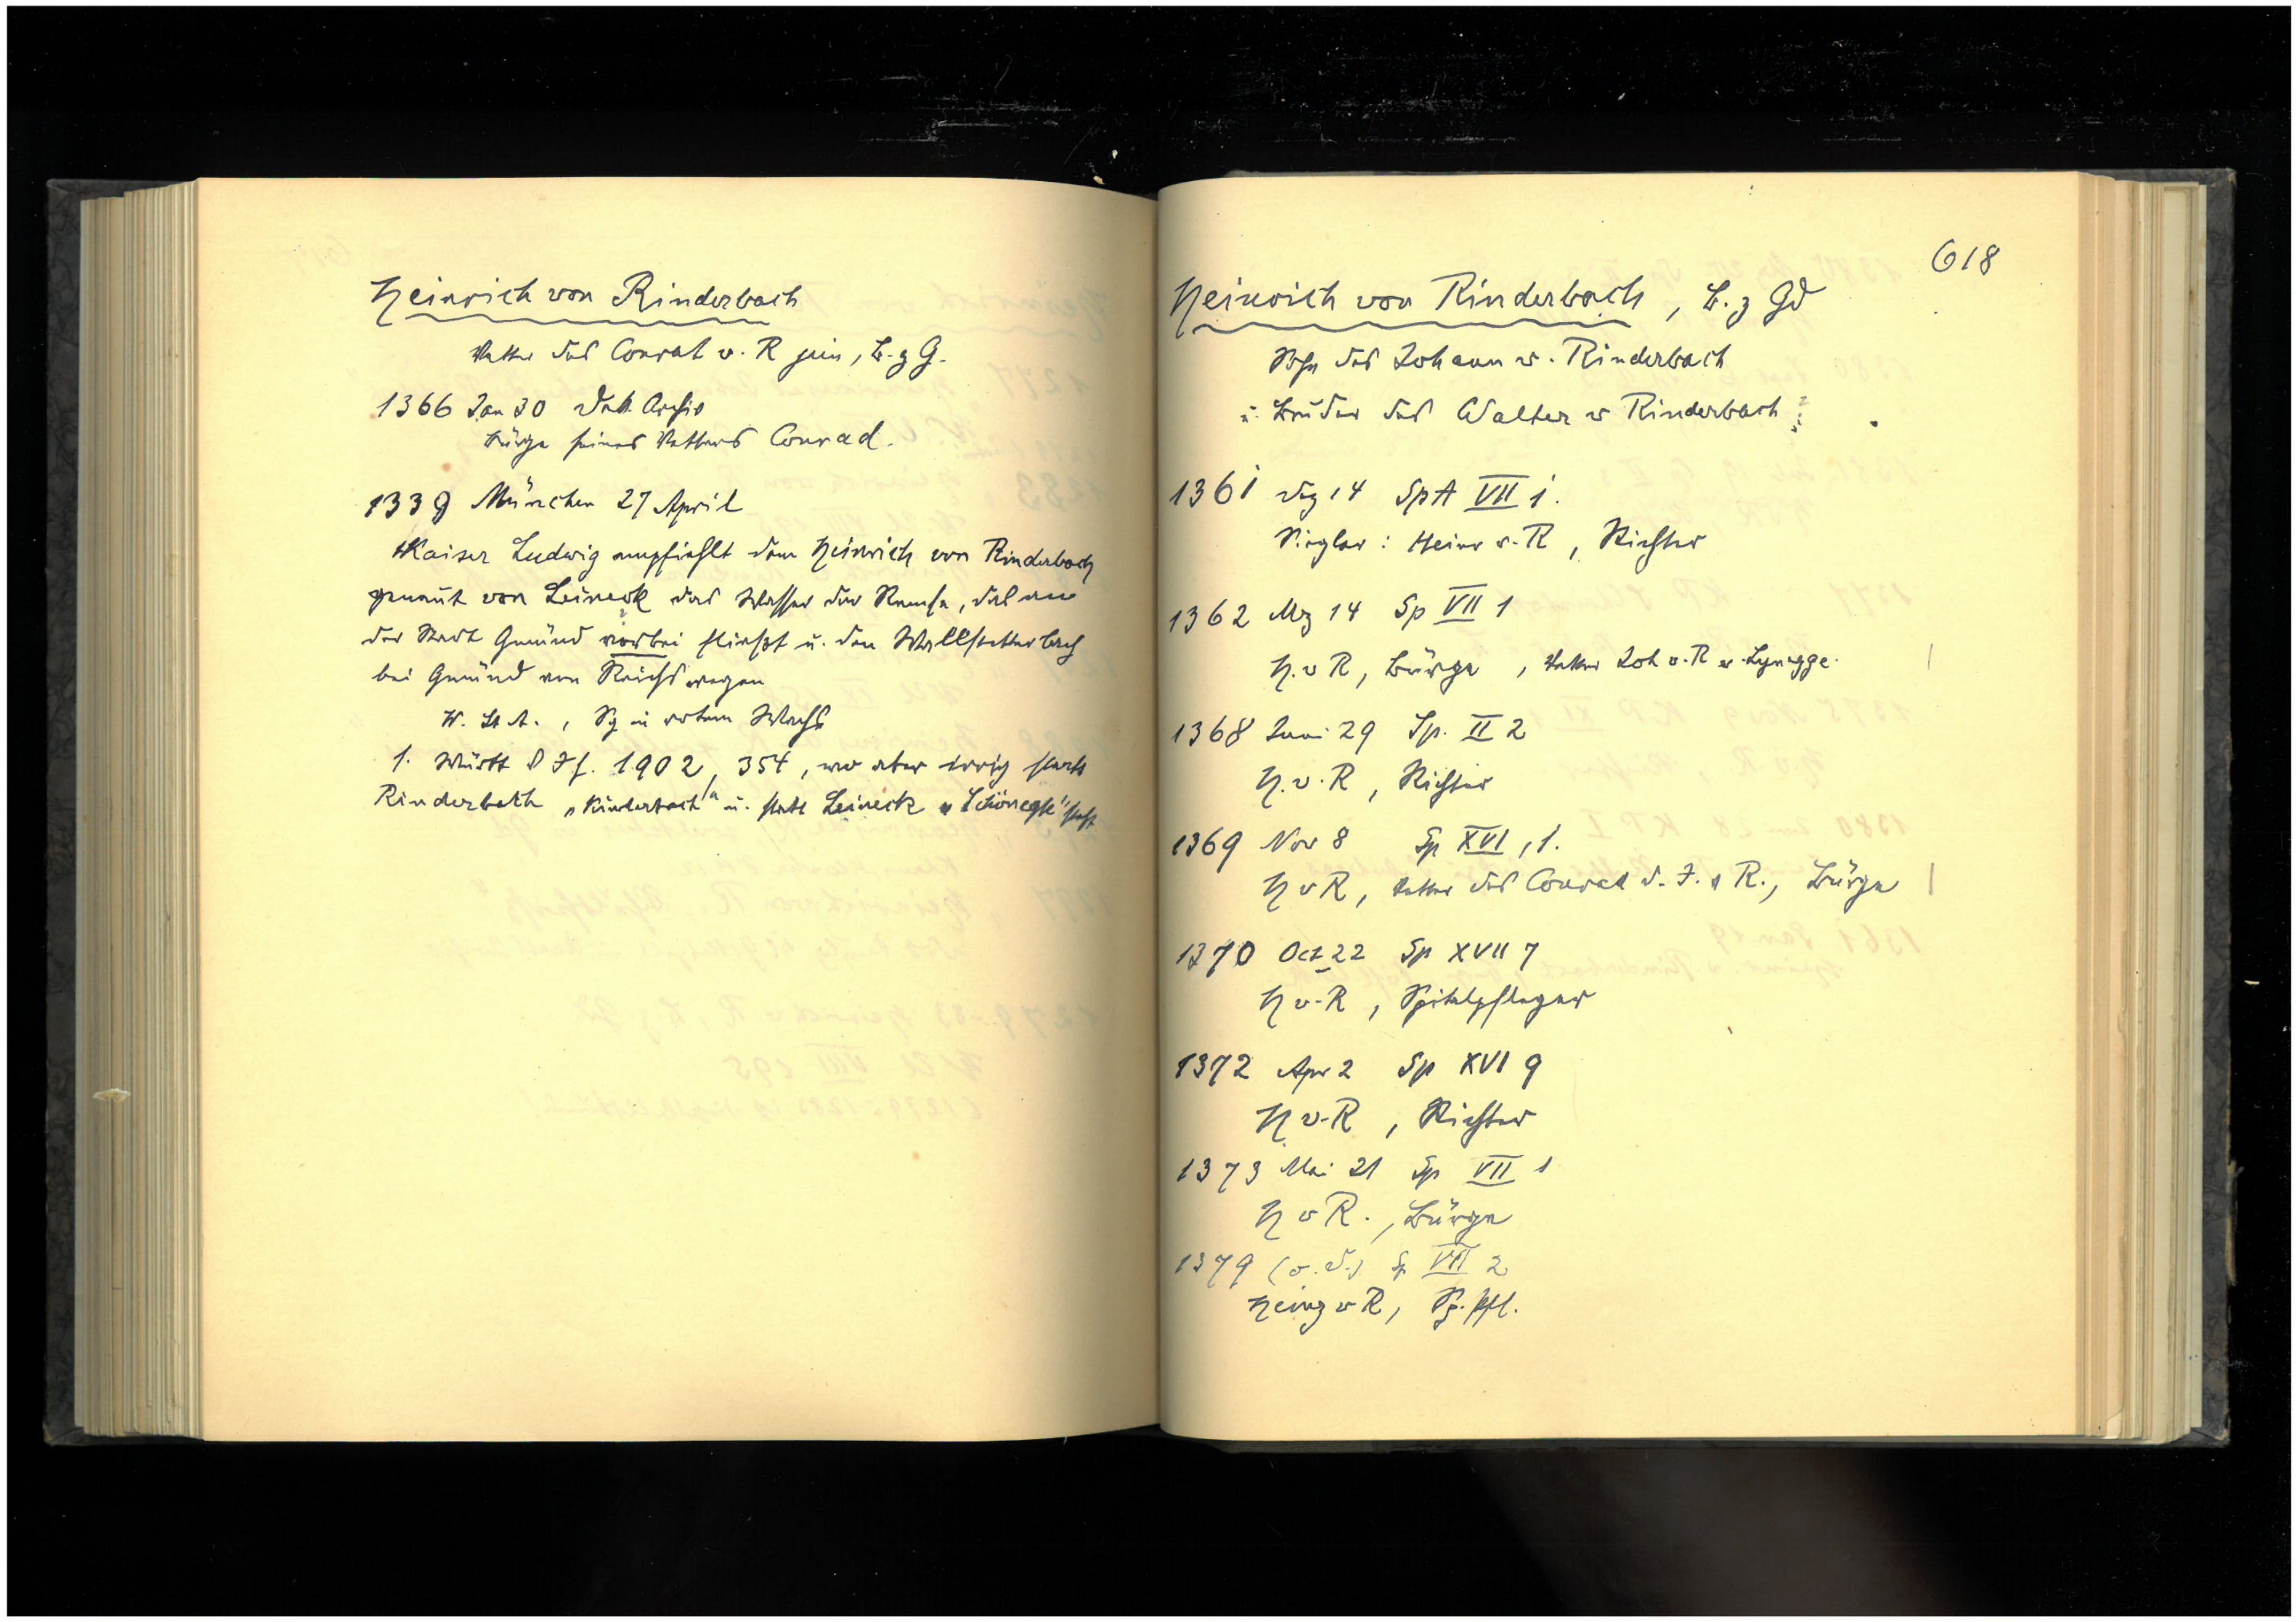 Heinrich von Rinderbach
Vetter des Conrat v. R jun, B. z G.
1366 Jan 30 Dek Archiv
Bürge seines Vetters Conrad.
1339 München 27 April
Kaiser Ludwig empfiehlt dem Heinrich von Rinderbach
genannt von Leineck das Wasser der Remse, das an
der Stadt Gmünd vorbei fliesst u. den Wallstetter bach
bei Gmünd von Reichs wegen
W. St A. , Sg in rotem Wachs
s. Württ V Jh. 1902, 354, wo aber irrig statt
Rinderbach „Kinderbach" u. statt Leineck „Schönegk" steht
618
Heinrich von Rinderbach, B. z Gd
Sohn des Johann v. Rinderbach
u. Bruder des Walter v Rinderbach
1361 Dez 14 Sp A VII 1.
Siegler: Heinr v. R, Richter
1362 Mz 14 Sp VII 1
H. v R, Bürge, Vetter Joh v. R v. Lynegge.
1368 Juni 29 Sp. II 2
H. v. R, Richter
1369 Nov 8 Sp XVI, 1.
H v R, Vetter des Conrad d. J. v R., Bürge
1370 Oct 22 Sp XVII 7
H v. R, Spitalpfleger
1372 Apr 2 Sp XVI 9
H v. R, Richter
1373 Mai 21 Sp VII 1
H v R., Bürge
1379 (o. D.) Sp VII 2
Heinz v R, Sp. pfl.